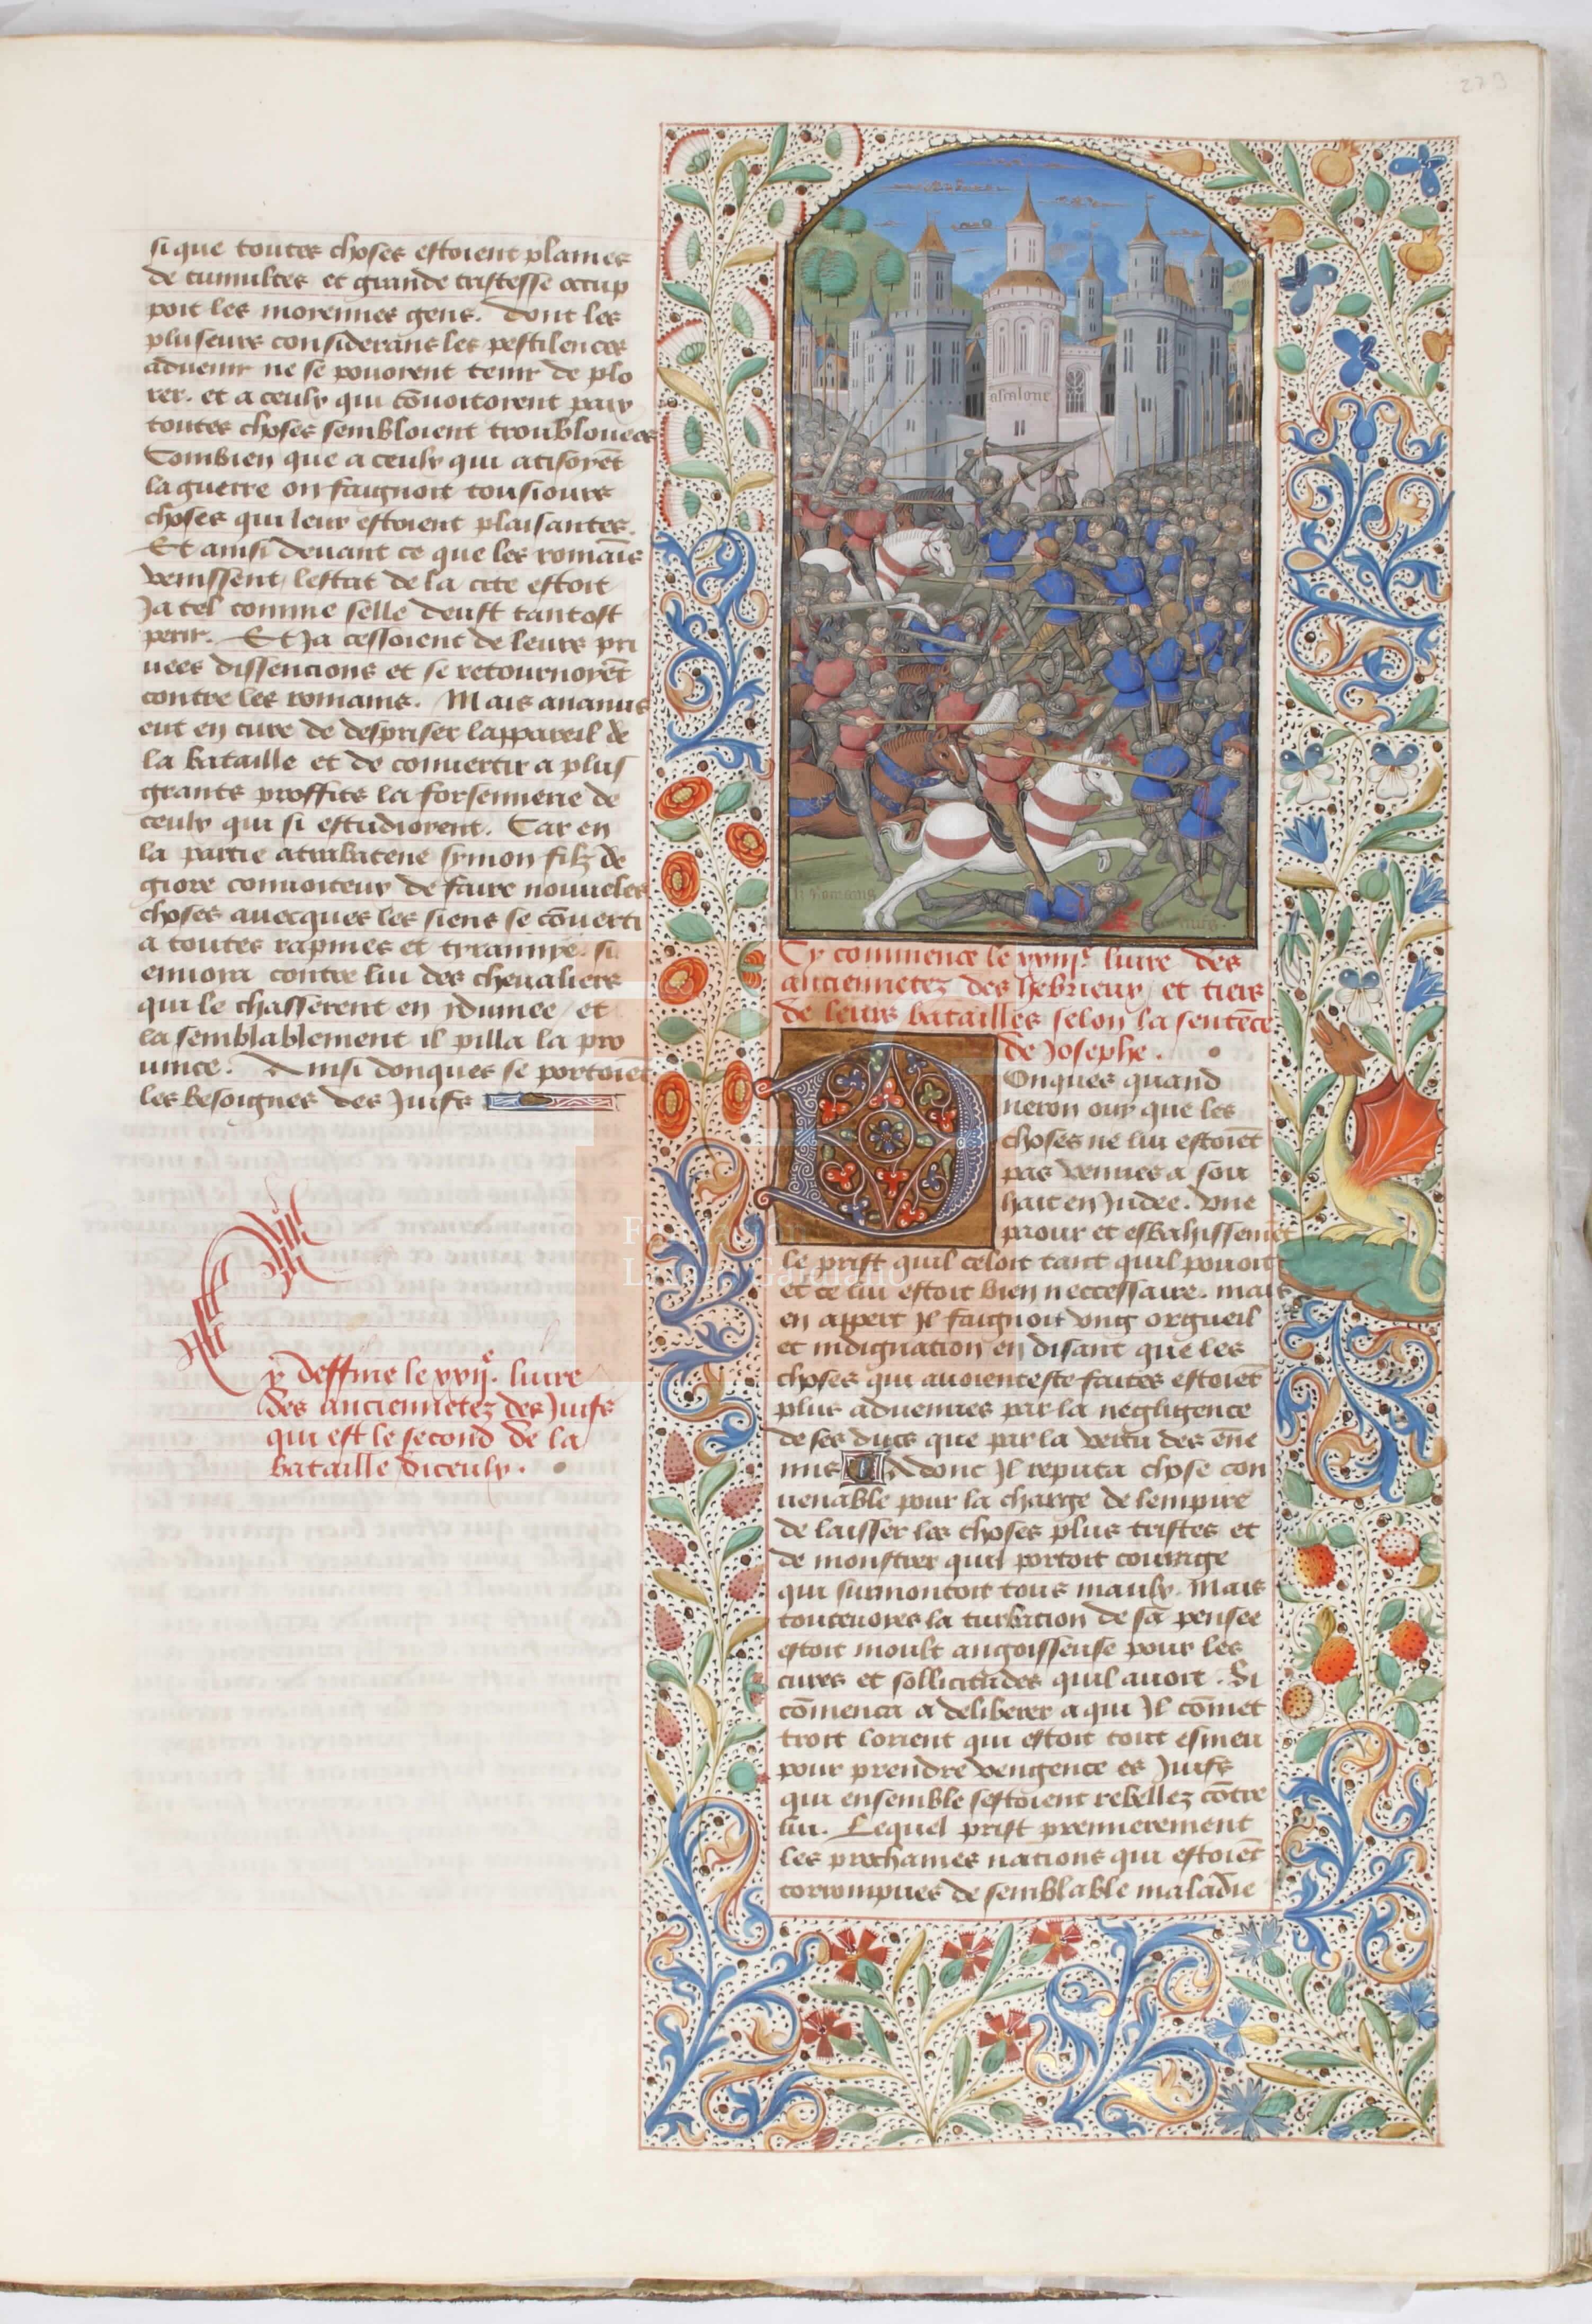 si que toutes choses estoient plaines
de tumultes et grande tristesse occup
poit les moiennes gens. Dont les
pluseurs considerans les pestilences
advenir ne se povoient tenir de plo
rer. et a ceulx qui co͞voitoient paix
toutes choses sembloient troublouees
Combien que a ceulx qui atisoie͞t
la guerre on faignoit tousiours
choses qui leur estoient plaisantes.
Et ainsi devant ce que les romai͞s
venissent, lestat de la cite estoit
Ja tel comme selle deust tantost
perir. Et Ja cessoient de leurs pri
uees dissencions et se retournoie͞t
contre les romains. Mais ananus
eut en cure de despriser lappareil de
la bataille et de convertir a plus
grants proffits la forsennerie de
ceulx qui si estudioient. Car en
la partie atrabatene symon filz de
giore convoiteux de faire nouveles
choses avecques les siens se co͞verti
a toutes rapines et tyrannye. si
envoia contre lui des chevaliers
qui le chasserent en ydumee, et
la semblablement il pilla la pro
vince. Ainsi donques se portoie͞t
les besoignes des Juifs
Cy deffine le xxijᵉ. livre
des anciennetez des Juifs
qui est le second de la
bataille diceulx.
279
ascalone
li Romains
Juifs.
Cy commence le xxiijᵉ livre des
anciennetez des hebrieux, et tiers
de leurs batailles selon la sente͞ce
de Josephe.
Donques quand
neron ouy que les
choses ne lui estoie͞t
pas venues a sou
hait en Judee. une
paour et esbahisseme͞t
le prist quil celoit tant quil povoit
et ce lui estoit bien neccessaire. mais
en appert Il faignoit ung orgueil
et indignation en disant que les
choses qui avoient este faites estoie͞t
plus advenues par la negligence
de ses ducs que par la vertu des e͞ne
mis Adonc Il reputa chose con
venable pour la charge de lempire
de laisser les choses plus tristes et
de monstrer quil portoit courage
qui surmontoit tous maulx. Mais
toutevoies la turbacion de sa pensee
estoit moult angoisseuse pour les
cures et sollicitudes quil avoit. Si
co͞menca a deliberer a qui Il co͞met
troit lorient qui estoit tout esmeu
pour prendre vengence es Juifs
qui ensemble sestoient rebellez co͞tre
lui. Lequel prist premierement
les prochaines nations qui estoie͞t
corrompues de semblable maladie
Fundación
Lázaro Galdiano